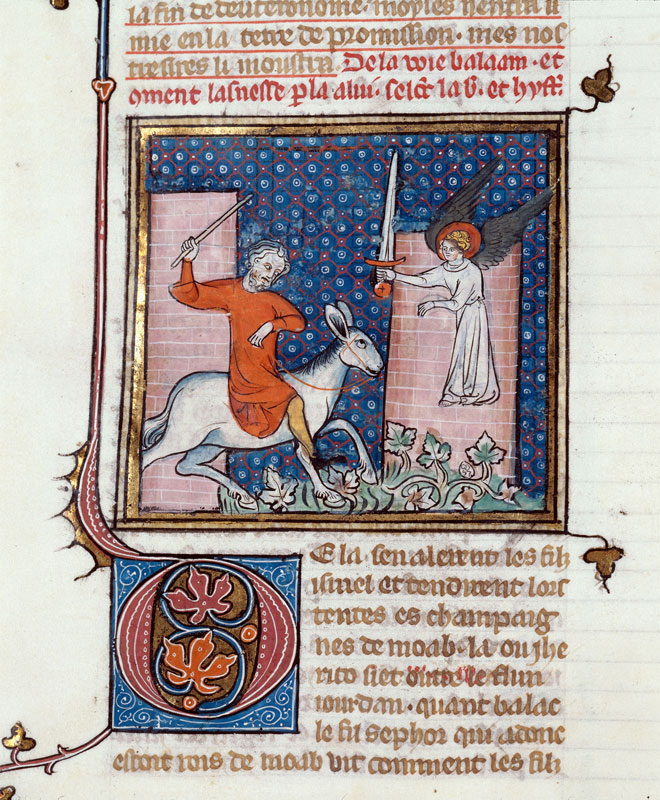 la fin de deuteronome. moyses nentra u
mie en la terre de promission. mes nos
tre sires li moustra. De la voie balaam. et
oment lasnesse pla a lui. selc la b. et hyst.
E la. sen alerent les filz
israel et tendirent lors
tentes es champaig
nes de moab. la ou jhe
rico siet outre le flun
iourdan. quant balac
le fil sephor qui adonc
estoit rois de moab vit comment les filz